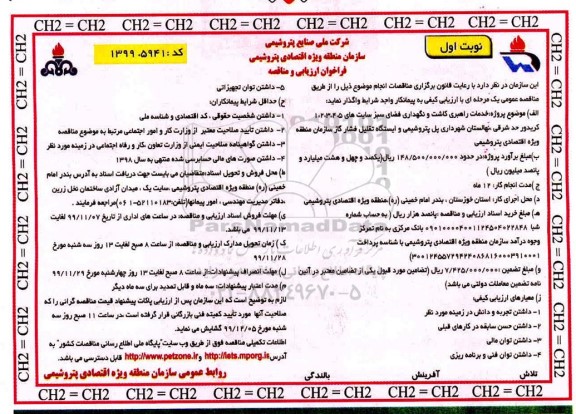 CH2 = CH2 CH2 = CH2 CH2 = CH2 CH2 = CH2 CH2 = CH2
نوبت اول
شرکت ملی صنایع پتروشیمی
سازمان منطقه ویژه اقتصادی پتروشیمی
فراخوان ارزیابی و مناقصه
کد : ۱۳۹۹.۵۹۴۱
این سازمان در نظر دارد با رعایت قانون برگزاری مناقصات انجام موضوع ذیل را از طریق
مناقصه عمومی یک مرحله ای با ارزیابی کیفی به پیمانکار واجد شرایط واگذار نماید:
الف) موضوع پروژه:خدمات راهبری کاشت و نگهداری فضای سبز سایت های ۱،۲،۳،۴،۵
کریدور حد شرقی ،نهالستان شهرداری پل پتروشیمی و ایستگاه تقلیل فشار گاز سازمان منطقه
ویژه اقتصادی پتروشیمی
ب)مبلغ برآورد پروژه:در حدود ۱۴۸/۵۰۰/۰۰۰/۰۰۰ ریال(یکصد و چهل و هشت میلیارد و
پانصد میلیون ریال )
ج )مدت انجام کار: ۱۲ ماه
د) محل اجرای کار: استان خوزستان ، بندر امام خمینی (ره)،منطقه ویژه اقتصادی پتروشیمی
ه) مبلغ خرید اسناد ارزیابی و مناقصه: پانصد هزار ریال ( به حساب شماره
بانک مرکزی به نام تمرکز
وجوه درآمد سازمان منطقه ویژه اقتصادی پتروشیمی با شناسه پرداخت
و) مبلغ تضمین :۷/۴۲۵/۰۰۰/۰۰۰ ریال (تضامین مورد قبول یکی از تضامین معتبر در آئین
نامه تضمین معاملات دولتی می باشد)
ز) معیارهای ارزیابی کیفی:
۱- داشتن تجربه و دانش در زمینه مورد نظر
۲- داشتن حسن سابقه در کارهای قبلی
۳- داشتن توان مالی
۴- داشتن توان فنی و برنامه ریزی
۵- داشتن توان تجهیزاتی
ح) حداقل شرایط پیمانکاران:
۱- داشتن شخصیت حقوقی ، کد اقتصادی و شناسه ملی
۲- داشتن تأیید صلاحیت معتبر از وزارت کار و امور اجتماعی مرتبط به موضوع مناقصه
۳- داشتن گواهینامه صلاحیت ایمنی از وزارت تعاون و کار و رفاه اجتماعی در زمینه مورد نظر
۴- داشتن صورت های مالی حسابرسی شده منتهی به سال ۱۳۹۸
ط) محل فروش و تحویل اسناد:متقاضیان می بایست جهت دریافت اسناد به آدرس بندر امام
خمینی (ره) منطقه ویژه اقتصادی پتروشیمی سایت یک ، میدان آزادی ساختمان نخل زرین
،دفاتر مدیریت مهندسی ، امور پیمانها(تلفن:۵۲۱۱۰۱۸۳-۰۶۱) مراجعه فرمایند .
ی) مهلت فروش اسناد ارزیابی و مناقصه: در ساعت های اداری از تاریخ ۹۹/۱۱/۰۷ لغایت
۹۹/۱۱/۱۲ می باشد.
ک ) زمان تحویل مدارک ارزیابی و مناقصه: از ساعت ۸ صبح لغایت ۱۳ روز سه شنبه مورخ
۹۹/۱۱/۲۸
ل) مهلت انصراف پیشنهادات: از ساعت ۸ صبح لغایت ۱۳ روز چهارشنبه مورخ ۹۹/۱۱/۲۹
م) مدت اعتبار پیشنهادات: سه ماه و قابل تمدید برای سه ماه دیگر
لازم به توضیح است که این سازمان پس از ارزیابی پاکات پیشنهاد قیمت مناقصه گرانی را که
صلاحیت آنها مورد تأیید کمیته فنی بازرگانی قرار گرفته است ،در ساعت ۱۱ صبح روز سه
شنبه مورخ ۹۹/۱۲/۰۵ گشایش می نماید.
اطلاعات تکمیلی مناقصه فوق از طریق وب سایت"پایگاه ملی اطلاع رسانی مناقصات کشور" به
آدرس http://iets.mporg.ir و http://www.petzone.ir قابل دسترسی می باشد.
تلاش آفرینش بالندگی
روابط عمومی سازمان منطقه ویژه اقتصادی پتروشیمی
CH2 = CH2 CH2 = CH2 CH2 = CH2 CH2 = CH2 CH2 = CH2